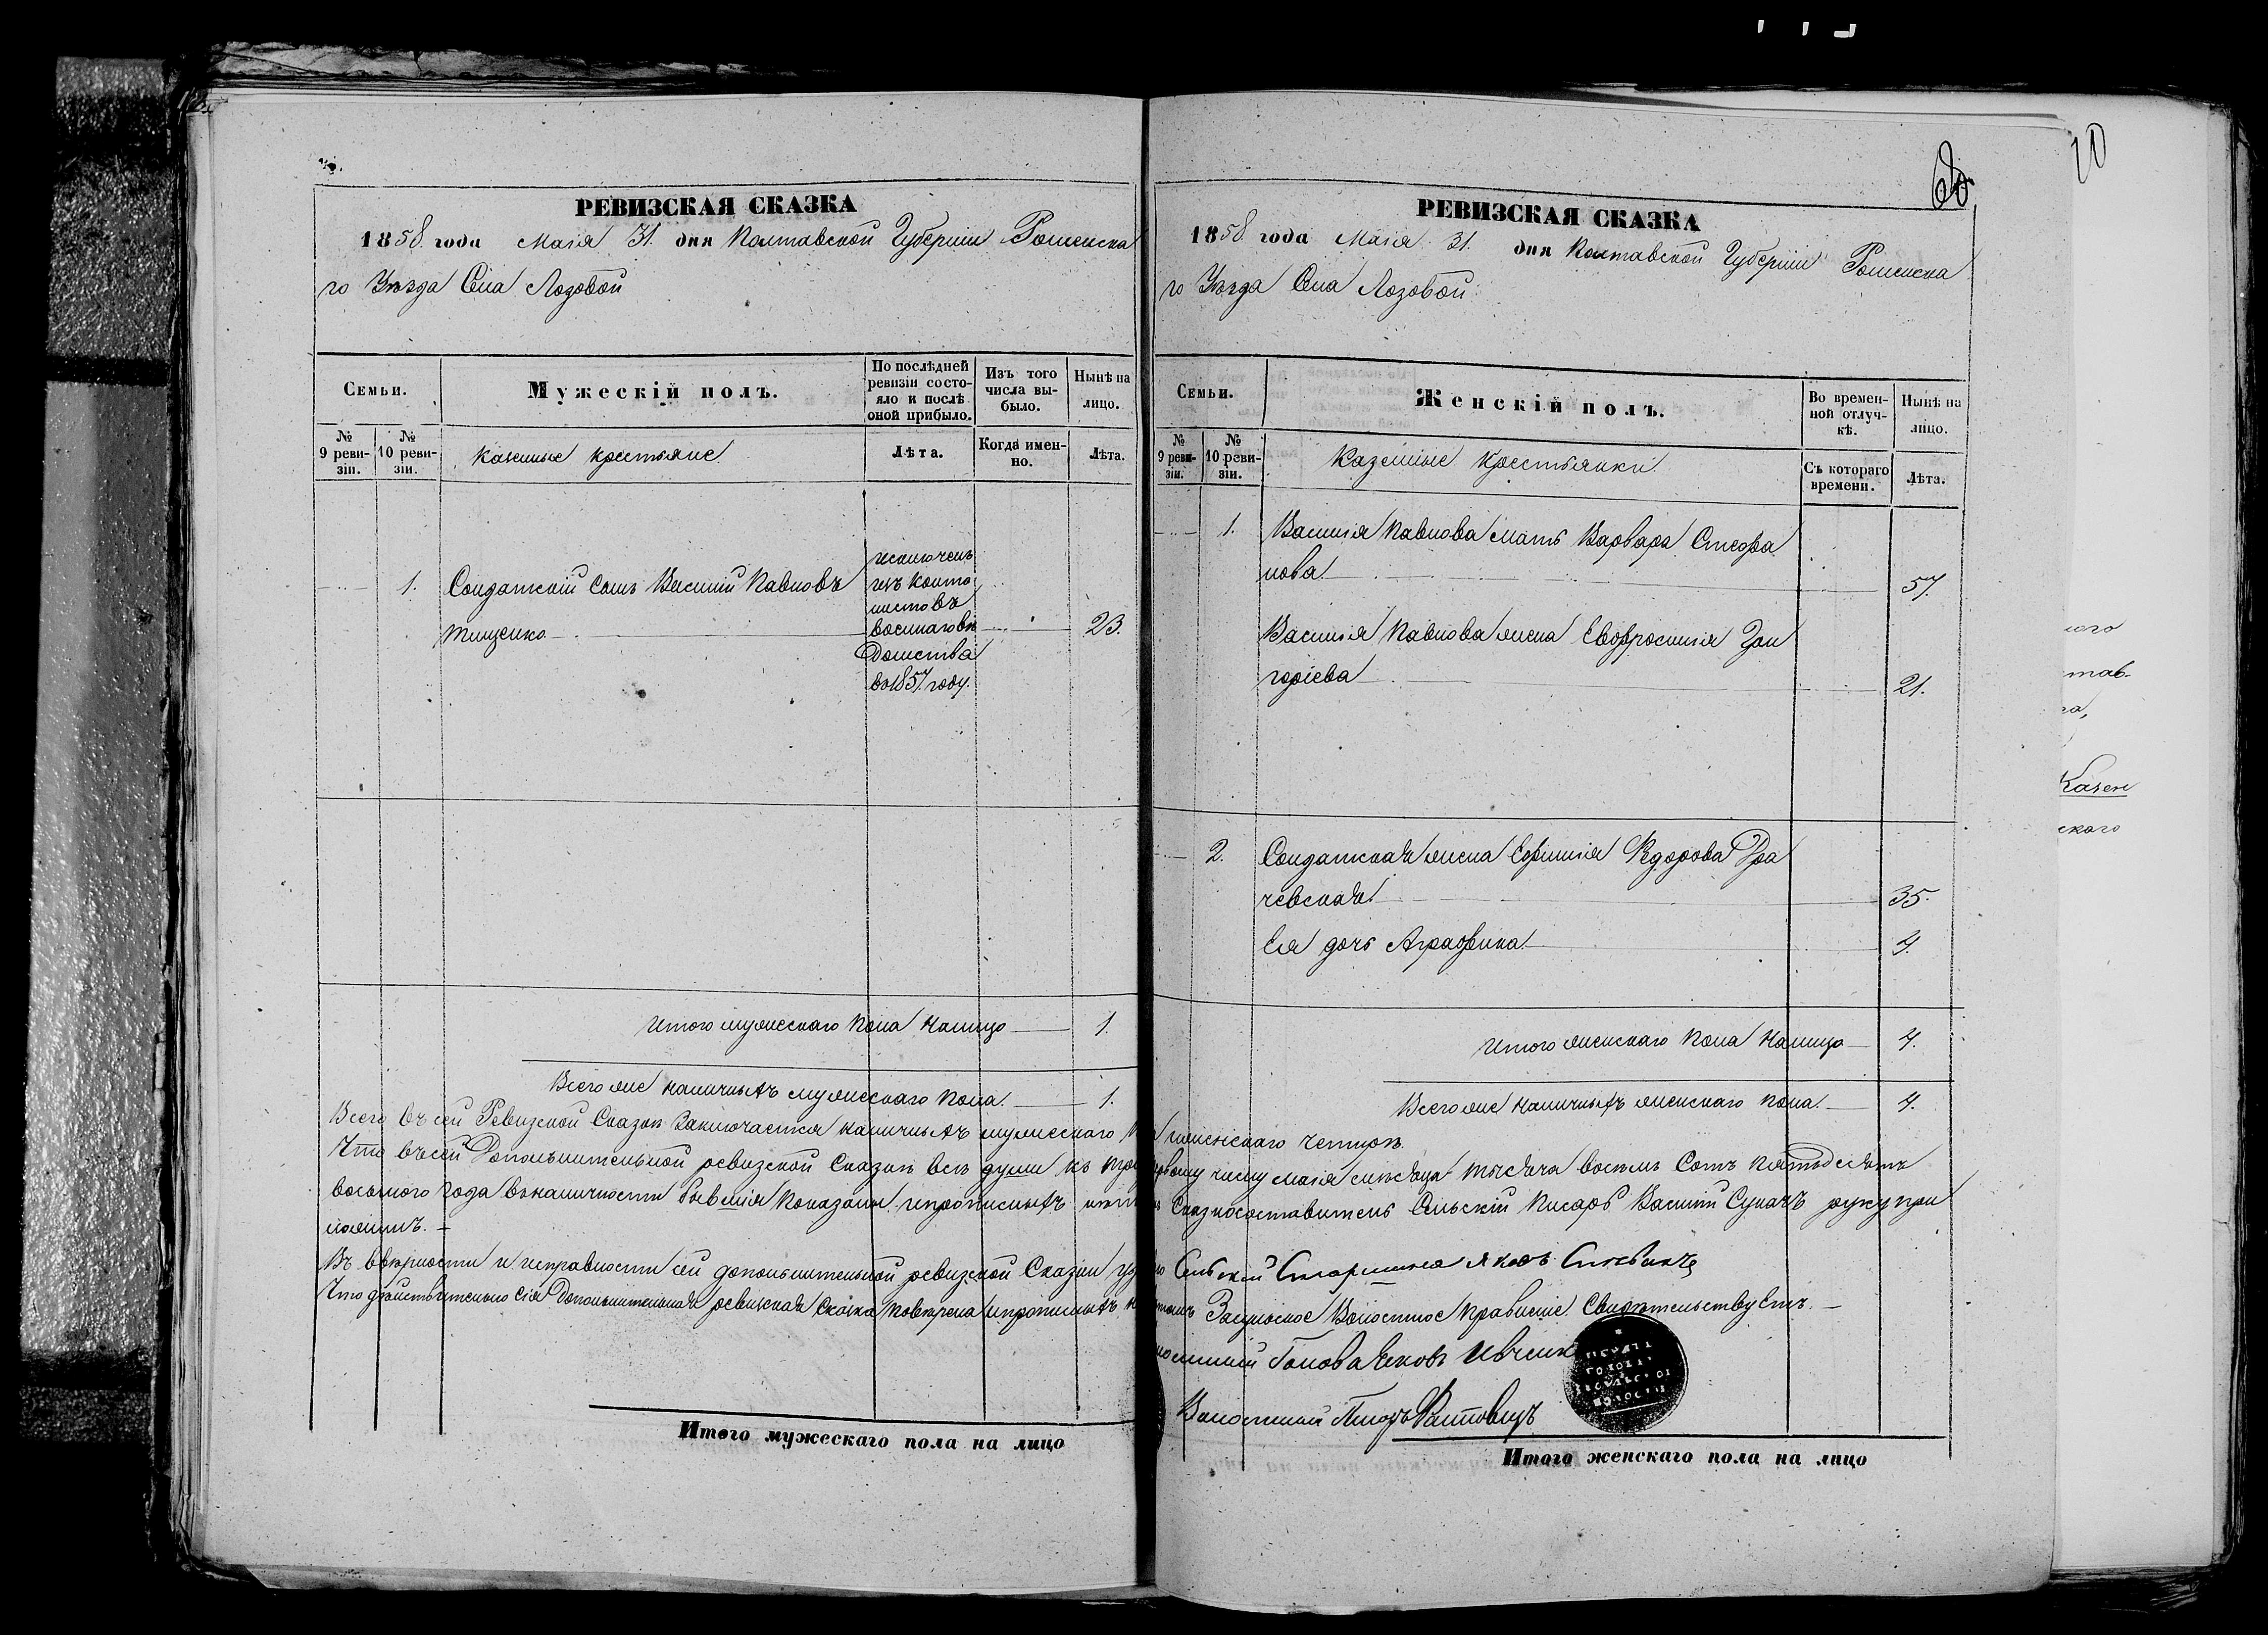 РЕВИЗСКАЯ СКАЗКА
1858 года Маія 31. дня Полтавской Губерніи Роменска
го Уѣзда Села Лозовой
Семьи.
Мужескій полъ.
По послѣдней ревизіи состояло и послѣ оной прибыло.
Изъ того числа выбыло.
Нынѣ на лицо.
№ 9 ревизіи.
№ 10 ревизіи.
Казенные крестьяне.
Лѣта.
Когда именно.
Лѣта.
1.
Солдатскій сынъ Василій Павловъ
Тищенко
исключенъ
изъ канто
нистовъ
военнаго вѣ
домства
въ 1857. году.
23.
Итого мужескаго пола налицо 1.
Всего же наличныхъ мужескаго пола. 1.
РЕВИЗСКАЯ СКАЗКА
1858 года Маія 31. дня Полтавской Губерніи Роменска
го Уѣзда Села Лозовой
60
10
Семьи.
Женскій полъ.
Во временной отлучкѣ.
Нынѣ на лицо.
№ 9 ревизіи.
№ 10 ревизіи.
Казенные крестьянки.
Съ котораго времени.
Лѣта.
1. Василія Павлова мать Варвара Стефа
нова 57.
Василія Павлова жена Евфросинія Гри
горіева 21.
2. Солдатская жена Ефимія Федорова Гра
чевская 35.
Ея дочь Аграфина 4.
Итого женскаго пола налицо 4.
Всего же наличныхъ женскаго пола. 4.
Всего въ сей Ревизской Сказкѣ заключается наличныхъ мужескаго женскаго четыре.
Что въ сей Дополнительной ревизской Сказкѣ всѣ души къ первому числу маія мѣсяца тысяча восемь сотъ пятьдесятъ
восьмого года въ наличности бывшія показаны и прописныхъ нѣтъ Сказкосоставитель Сельскій Писарь Василій Сукачъ руку при
ложилъ.
Въ вѣрности и исправности сей дополнительной ревизской Сказки Сельскій Старшина Яковъ
Что дѣйствительно сія Дополнительная ревизская Сказка повѣрена и прописныхъ Волостное Правленіе Свидѣтельствуетъ.
Голова Яковъ
Волостной Писарь
Итого мужескаго пола на лицо
Итого женскаго пола на лицо